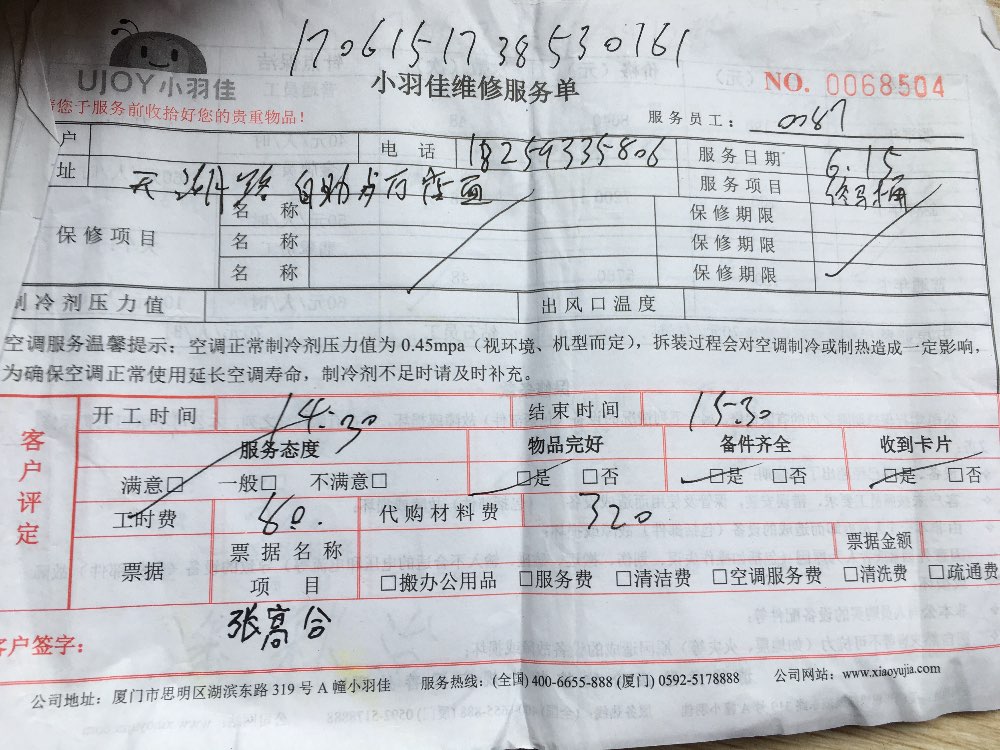 170615173853 0761
UJOY小羽佳
小羽佳维修服务单
NO. 0068504
请您于服务前收拾好您的贵重物品!
服务员工: 0087
户 电话 18259335806 服务日期 6.15
址 天湖路 自助 店面 服务项目
保修项目 名称 保修期限
名称 保修期限
名称 保修期限
制冷剂压力值 出风口温度
空调服务温馨提示:空调正常制冷剂压力值为 0.45mpa(视环境、机型而定),拆装过程会对空调制冷或制热造成一定影响,
为确保空调正常使用延长空调寿命,制冷剂不足时请及时补充。
客户评定
开工时间 14:30 结束时间 15:30
服务态度 物品完好 备件齐全 收到卡片
满意□ 一般□ 不满意□ □是 □否 □是 □否 □是 □否
工时费 80. 代购材料费 320
票据 票据名称 票据金额
项目 □搬办公用品 □服务费 □清洁费 □空调服务费 □清洗费 □疏通费
客户签字: 张高合
公司地址:厦门市思明区湖滨东路 319 号 A 幢小羽佳 服务热线:(全国) 400-6655-888 (厦门) 0592-5178888 公司网站:www.xiaoyujia.com